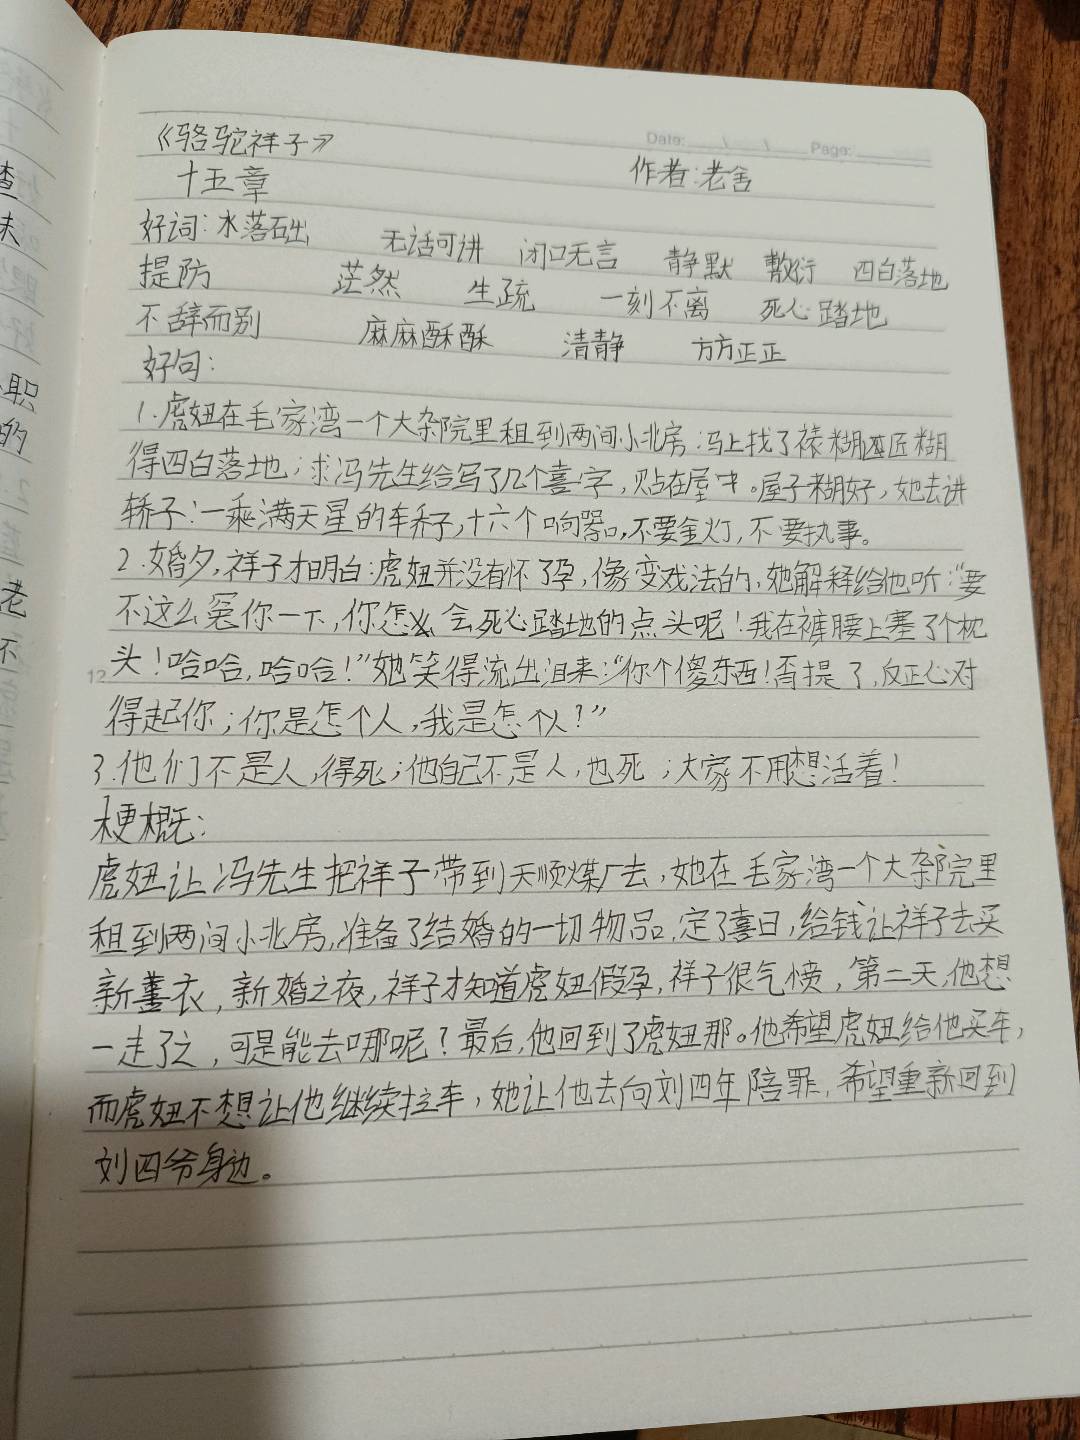 《骆驼祥子》
Date: Page:
十五章 作者:老舍
好词:水落石出 无话可讲 闭口无言 静默 敷衍 四白落地
提防 茫然 生疏 一刻不离 死心踏地
不辞而别 麻麻酥酥 清静 方方正正
好句:
1.虎妞在毛家湾一个大杂院里租到两间小北房;马上找了裱糊匠糊
得四白落地;求冯先生给写了几个喜字,贴在屋中。屋子糊好,她去讲
轿子:一乘满天星的轿子,十六个响器,不要金灯,不要执事。
2.婚夕,祥子才明白:虎妞并没有怀了孕,像变戏法的,她解释给他听:“要
不这么冤你一下,你怎么会死心踏地的点头呢!我在裤腰上塞了个枕
头!哈哈,哈哈!”她笑得流出泪来:“你个傻东西!甭提了,反正心对
得起你;你是怎个人,我是怎个人?”
3.他们不是人,得死;他自己不是人,也死;大家不用想活着!
梗概:
虎妞让冯先生把祥子带到天顺煤厂去,她在毛家湾一个大杂院里
租到两间小北房,准备了结婚的一切物品,定了喜日,给钱让祥子去买
新衣,新婚之夜,祥子才知道虎妞假孕,祥子很气愤,第二天,他想
一走了之,可是能去哪呢?最后,他回到了虎妞那。他希望虎妞给他买车,
而虎妞不想让他继续拉车,她让他去向刘四年陪罪,希望重新回到
刘四爷身边。
12